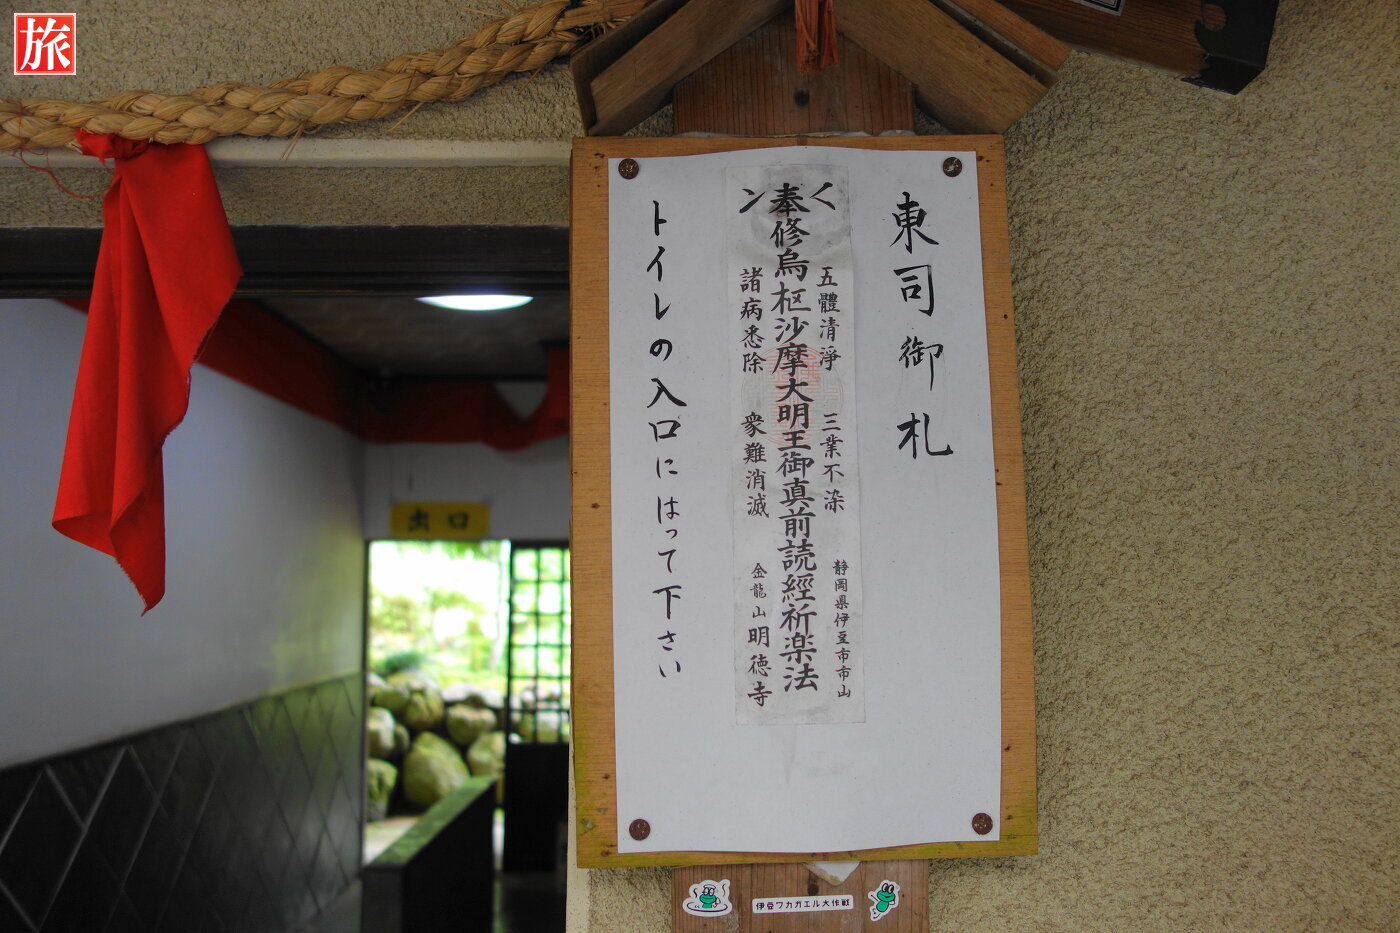 旅
東司御札
く
ン
奉修烏枢沙摩大明王御真前読經祈楽法
五體清淨 三業不染
諸病悉除 衆難消滅
静岡県伊豆市市山
金龍山明徳寺
トイレの入口にはって下さい
出口
伊豆ワカガエル大作戦